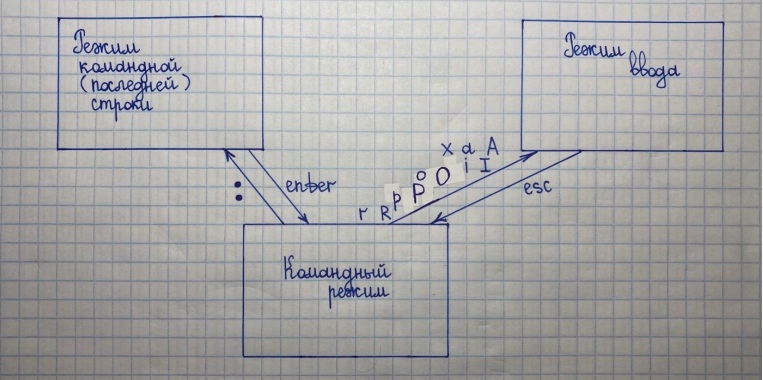 Режим
командной
(последней)
строки
Режим
ввода
:
enter
r R p P o O i I x d A
esc
Командный
режим